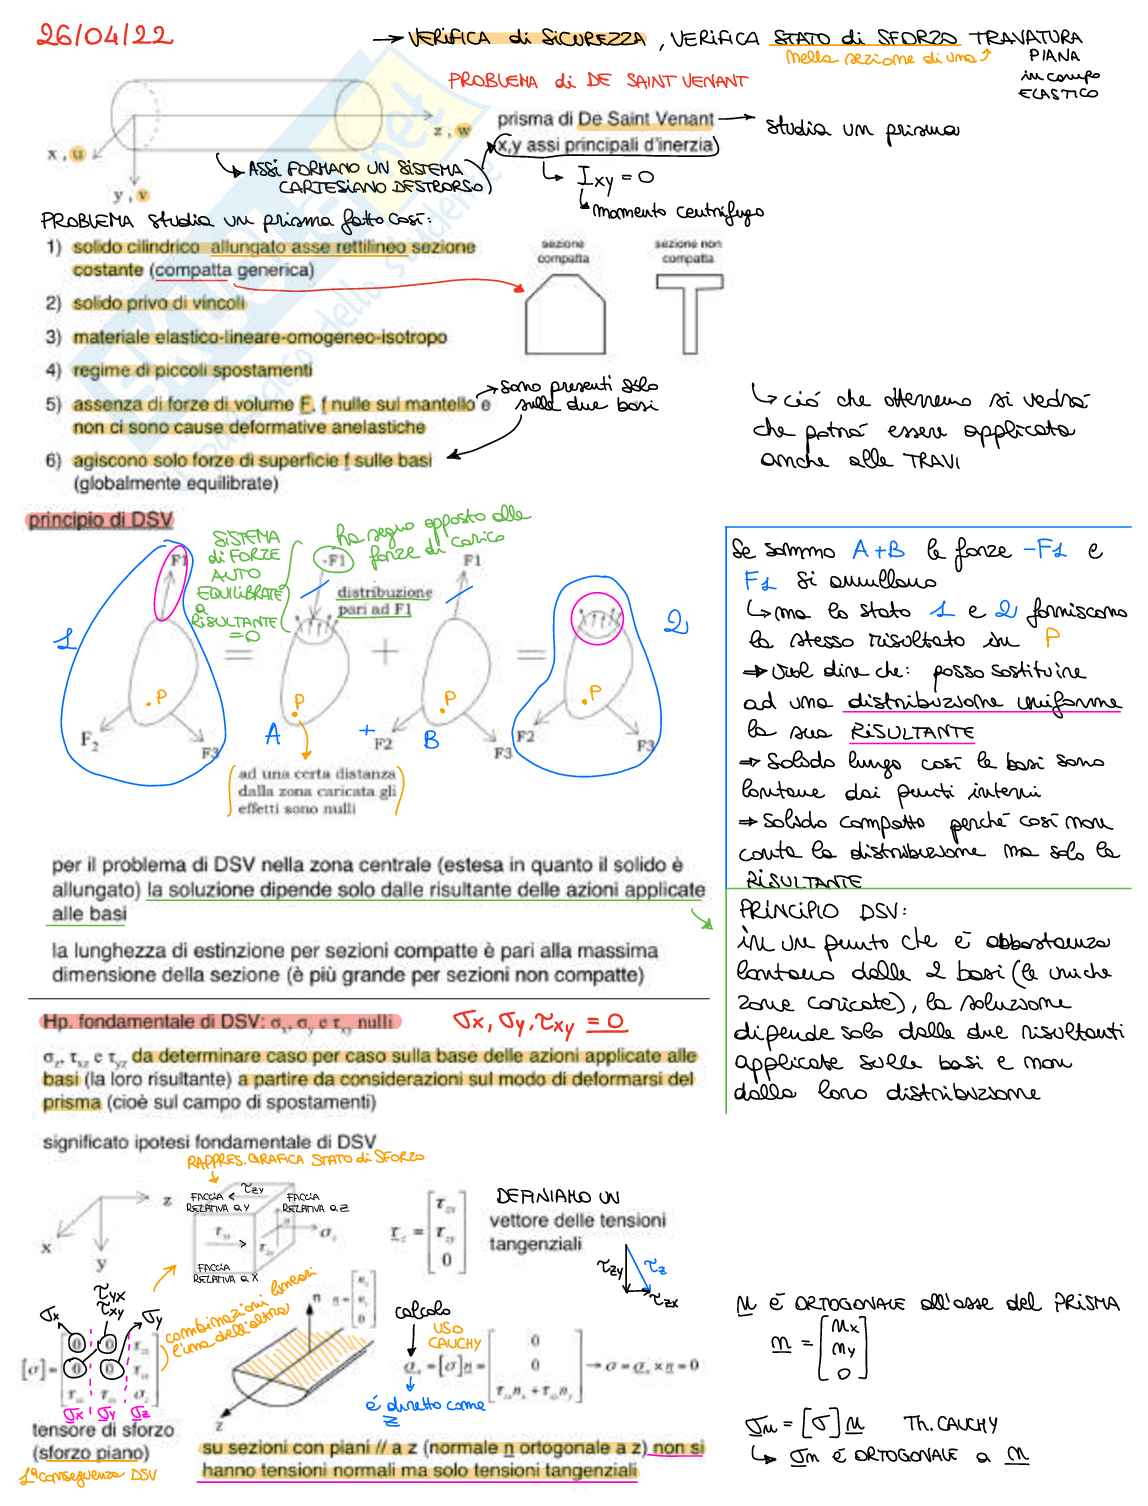 26/04/22
→ VERIFICA di SICUREZZA, VERIFICA STATO di SFORZO TRAVATURA
nella sezione di una
PIANA
in campo
ELASTICO
PROBLEMA di DE SAINT VENANT
prisma di De Saint Venant → studia un prisma
x,y assi principali d'inerzia
z, w
x, u
y, v
↳ ASSI FORMANO UN SISTEMA
CARTESIANO DESTRORSO
↳ Ixy = 0
↳ momento centrifugo
PROBLEMA studia un prisma fatto così:
1) solido cilindrico allungato asse rettilineo sezione
costante (compatta generica)
sezione
compatta
sezione non
compatta
2) solido privo di vincoli
3) materiale elastico-lineare-omogeneo-isotropo
4) regime di piccoli spostamenti
5) assenza di forze di volume F, f nulle sul mantello e
non ci sono cause deformative anelastiche
→ sono presenti solo
sulle due basi
6) agiscono solo forze di superficie f sulle basi
(globalmente equilibrate)
↳ ciò che otterremo si vedrà
che potrà essere applicato
anche alle TRAVI
principio di DSV
SISTEMA
di FORZE
AUTO
EQUILIBRATE
a
RISULTANTE
= 0
ha segno opposto alle
forze di carico
F1
-F1
F1
distribuzione
pari ad F1
1
=
+
=
2
P
P
P
P
A
+
B
F2
F3
F2
F3
F2
F3
ad una certa distanza
dalla zona caricata gli
effetti sono nulli
Se sommo A+B le forze -F1 e
F1 si annullano
↳ ma lo stato 1 e 2 forniscono
lo stesso risultato in P
⇒ vuol dire che: posso sostituire
ad una distribuzione uniforme
la sua RISULTANTE
⇒ Solido lungo così le basi sono
lontane dai punti interni
⇒ Solido compatto perché così non
conta la distribuzione ma solo la
RISULTANTE
per il problema di DSV nella zona centrale (estesa in quanto il solido è
allungato) la soluzione dipende solo dalle risultante delle azioni applicate
alle basi
la lunghezza di estinzione per sezioni compatte è pari alla massima
dimensione della sezione (è più grande per sezioni non compatte)
PRINCIPIO DSV:
in un punto che è abbastanza
lontano dalle 2 basi (le uniche
zone caricate), la soluzione
dipende solo dalle due risultanti
applicate sulle basi e non
dalla loro distribuzione
Hp. fondamentale di DSV: σx, σy e τxy nulli
σx, σy, τxy = 0
σz, τxz e τyz da determinare caso per caso sulla base delle azioni applicate alle
basi (la loro risultante) a partire da considerazioni sul modo di deformarsi del
prisma (cioè sul campo di spostamenti)
significato ipotesi fondamentale di DSV
RAPPRES. GRAFICA STATO di SFORZO
z
x
y
FACCIA
RELATIVA a Y
τzy
FACCIA
RELATIVA a Z
σz
FACCIA
RELATIVA a X
τz = [τzx
τzy
0]
DEFINIAMO UN
vettore delle tensioni
tangenziali
τzy
τz
τzx
τyx
τxy
σx
σy
combinazioni lineari
l'una dell'altra
[σ] = [0 0 τzx
0 0 τzy
τzx τzy σz]
σx σy σz
tensore di sforzo
(sforzo piano)
1ª conseguenza DSV
n
n = [nx
ny
0]
z
calcolo
USO
CAUCHY
σn = [σ]n = [0
0
τzx nx + τzy ny] → σ = σn × n = 0
è diretto come
z
su sezioni con piani // a z (normale n ortogonale a z) non si
hanno tensioni normali ma solo tensioni tangenziali
n è ORTOGONALE all'asse del PRISMA
n = [nx
ny
0]
σn = [σ] n Th. CAUCHY
↳ σn è ORTOGONALE a n